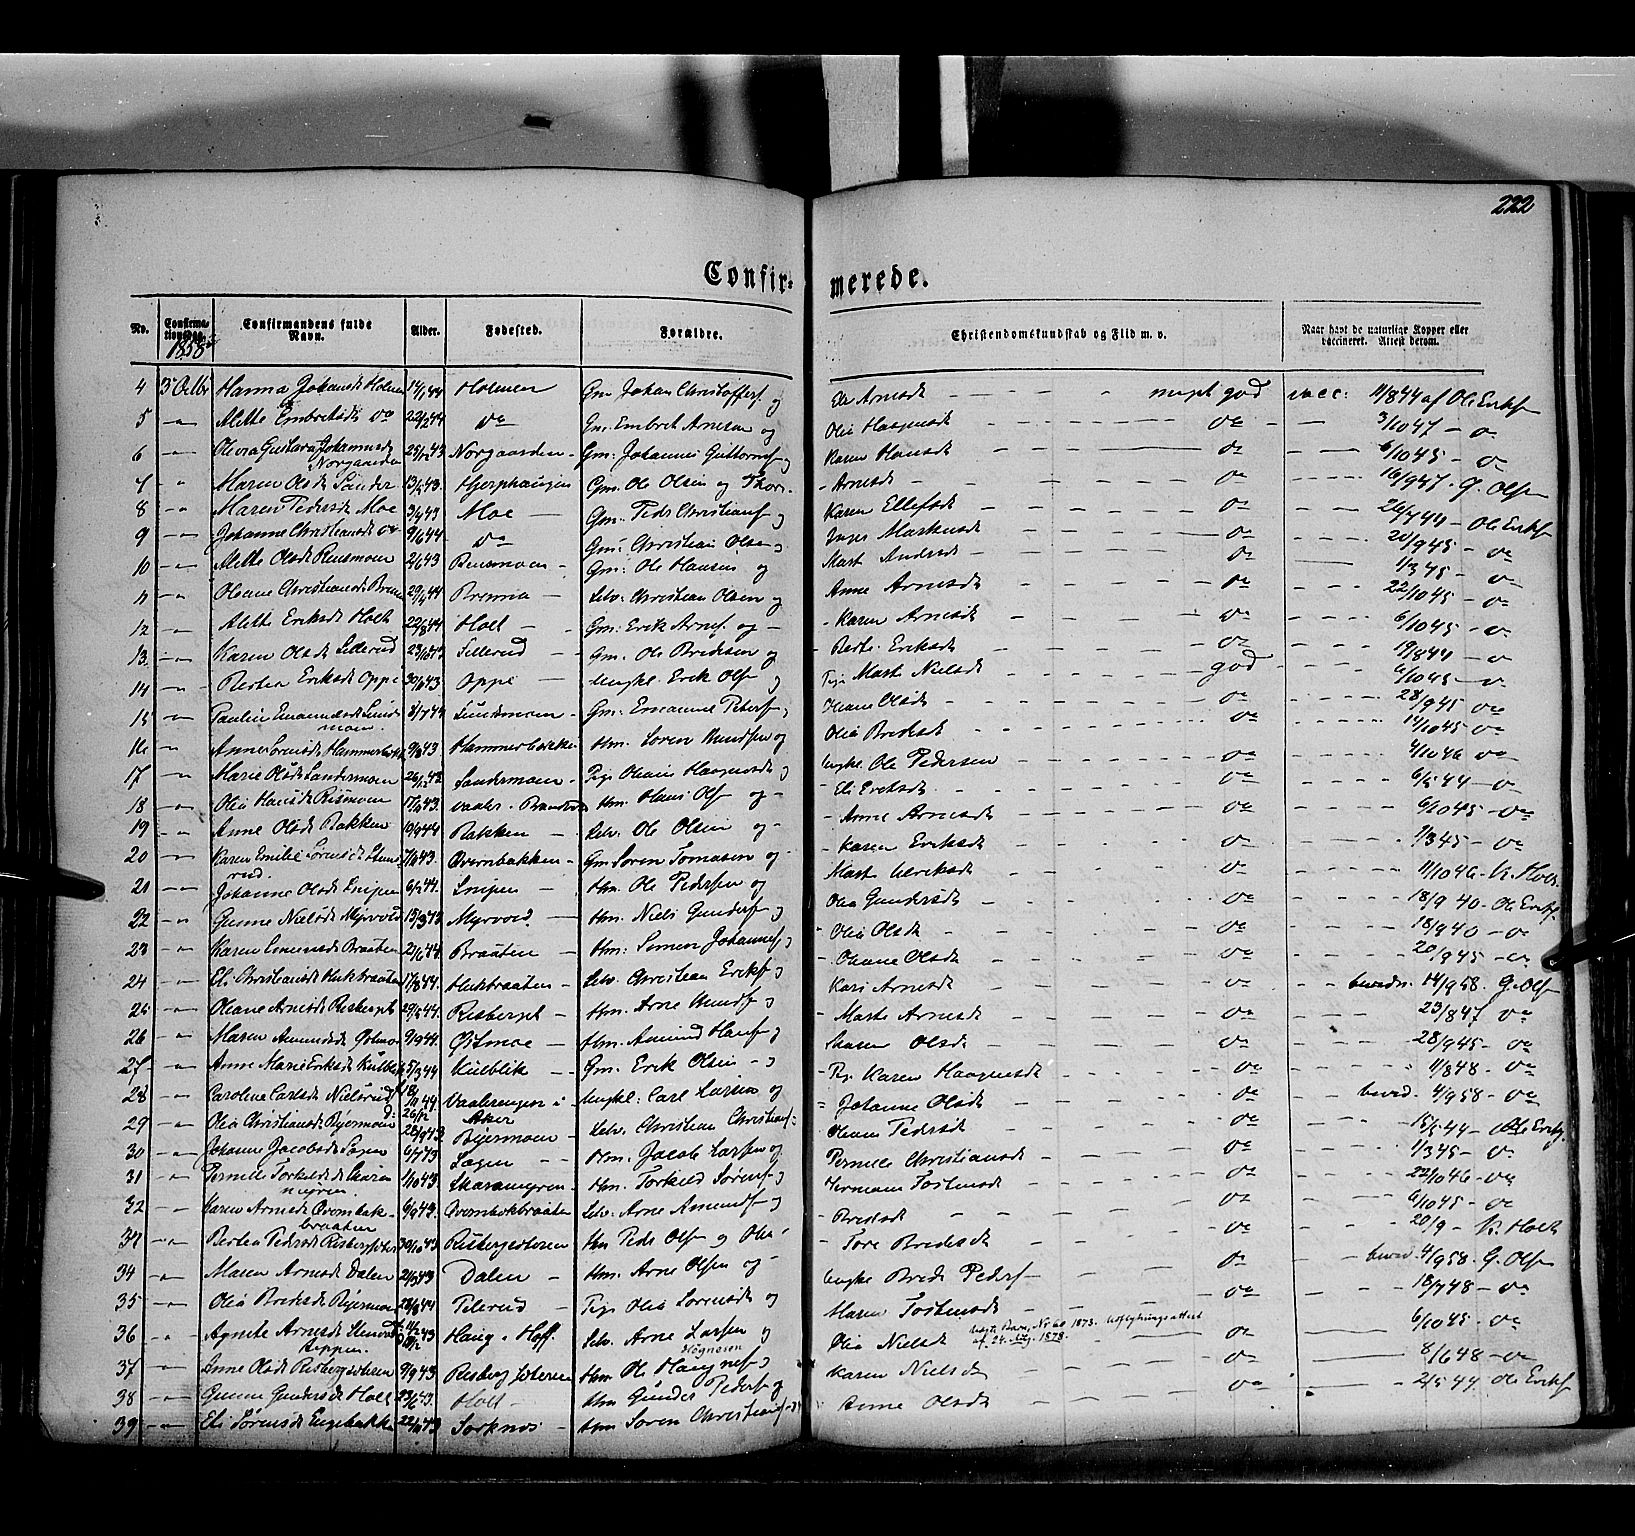 222
Confir= merede.
No. Confirma-tionsdag. Confirmandens fulde Navn. Alder. Fødested. Forældre. Christendomskundskab og Flid m. v. Naar havt de naturlige Kopper eller vaccineret. Attest derom.
1858
4 3 Octbr Hanna Johansdt Holmen 14/1 44 Holmen Gm Johan Christoffers. og Eli Arnesdt meget god vacc: 11/8 44 af Ole Eriks.
5 -"- Mette Embretsdt do 22/2 44 do Gm. Embret Arnesen og Olia Haagensdt do 3/10 47 - do
6 -"- Olevia Gustava Johannesdt Norgaarden 25/12 43 Norgaarden Gm: Johannes Guttorms. og Karen Hansdt do 6/10 45 - do
7 " Maren Olsdt Sander 13/ 43. Hjerphaugen Gm. Ole Olsen og Thor. - Arnesdt do 16/9 47. G. Olsen
8 " Maren Pedersdt Moe 3/ 43 Moe Gm. Peder Christians. og Karen Ellefsdt do 26/7 44 - Ole Eriks.
9 -"- Johanne Christiansdt do 9/6 44 do Gm: Christian Olsen og Inger Mathisdt do 20/9 45 - do
10 -"- Mette Olsdt Rensmoen 2/6 43 Rensmoen - Gm: Ole Hansen og Mart Andersdt do 1/3 45 - do
11 -"- Oleane Christiansdt Brenna 29/ 44 Brenna Selv: Christian Olsen og Anne Arnesdt do 22/10 45 - do
12 -"- Mette Eriksdt Holt 22/8 44 Holt Gm: Erik Arnes. og - Karen Arnesdt do 6/10 45 - do
13. -"- Karen Olsdt Sillerud 23/10 43 Sillerud Gm. Ole Bredesen og - Berte Eriksdt do 19/8 44 - do
14 -"- Berthea Eriksdt Oppi 30/ 43 Oppi Ungkl. Erik Ols. og Pige Mart Nielsdt god 6/10 45 - do
15 -"- Pauline Emanuelsdt Lundmoen. 8/7 44 Lundmoen - Gm. Emanuel Peters. og Oleane Olsdt do 28/9 45 do
16 -"- Anne Sørensdt Hammerbakken 9/8 43 Hammerbakken Hm. Søren Amundsen og Olia Bredesdt do 14/10 45 do
17 -"- Marie Olsdt Sandermoen 26/12 43 Sandermoen - Pige Oleane Haagensdt og Ungkl. Ole Pedersen do 4/10 46 do
18 -"- Olia Hansdt Rismoen 17/ 43. Vaaler - Hm. Hans Ols. og - - Eli Eriksdt do 6/5 44 - do
19 -"- Anne Olsdt Bakken 10/9 44 Bakken Selv. Ole Olsen og - - Anne Arnesdt do 6/10 45 - do
20 -"- Karen Emilie Sørensdt Stenerud 7/ 43. Overnbakken - Gm Søren Tomasen og - - Karen Eriksdt do 1/3 45 - do
21 -"- Johanne Olsdt Snipen 6/2 44. Snipen Hm. Ole Pedersen og Mart Ulriksdt do 11/10 46 - K. Holt.
22 -"- Gunne Nielsdt Myrvold 15/3 43 Myrvold. Hm. Niels Gunders. og Olia Gundersdt do 18/9 40 - Ole Eriks.
23 -"- Karen Simensdt Braaten 21/ 44. Braaten - Hm: Simen Johannes. og - Olia Olsdt do 18/9 40 - do
24 -"- Eli Christiansdt Hukbraaten 17/8 44. Hukbraaten - Selv. Christian Eriks. og - Oleane Olsdt do 20/9 45 - do
25 -"- Oleane Arnesdt Risberget 29/ 44. Risberget - Hm. Arne Amunds. og Kari Arnesdt do bevidn. 14/9 58. G. Olsen
26 -"- Maren Amundsdt Østmoe 9/9 44. Østmoe - Hm. Amund Hans. og - Marte Arnesdt do 23/8 47 do
27 -"- Anne Marie Eriksdt Kulblik 5/3 44 Kulblik - Gm. Erik Olsen - og Maren Olsdt do 28/9 45 - do
28 -"- Caroline Carlsdt Nielsrud f 18/11 44. d: 26/12 Vaalerengen i Aker Ungkl: Carl Larsen og - Pige Karen Haagensdt do 11/8 48 - do
29 -"- Olia Christiansdt Bjermoen 28/9 43. Bjermoen - Selv. Christian Christians. - Johanne Olsdt do bevid. 4/9 58 - do
30 -"- Johanne Jacobsdt Sagen 6/7 43 Sagen Hm. Jacob Larsen og Oleane Pedersdt do 15/5 44 - Ole Eriks.
31 -"- Pernille Torkildsdt Skaramyren 1/10 43 Skaramyren - Hm. Torkild Sørens. og Pernille Christiansdt do 1/3 45 - do
32 -"- Karen Arnesdt Overnbakbraaten 6/9 43. Overnbakbraaten Selv. Arne Amunds. og Hermann Tostensdt do 22/10 46 - do
33 -"- Berthea Pedersdt Risbergseteren 30/10 43 Risbergseteren Hm Peder Ols. og Olia - - Bredesdt do 6/10 45 - do
34 -"- Maren Arnesdt Dalen 2/5 43 Dalen - Hm. Arne Olsen og - - Tore Bredesdt do 20/9 - K. Holt
35 -"- Olia Bredesdt Bjermoen 28/ 44 Pilerud Pige Olia Sørensdt og Ungkl Brede Peders. do bevid. 4/9 58. G. Olsen
36 " Agnete Arnesdt 43 Haug i Hoff. Selv. Arne Larsen og Maren Tostensdt do 18/7 48 - do
37 -"- Anne Olsdt Risbergseteren 9/9 43 Risbergseteren Hm Ole Haagens. og Høgnesen Olia Nielsdt Udflytningsattest af 24 Aug. 1878. do 6/10 45. do
38 -"- Gunne Gundersdt Holt 23/6 43. Holt - Hm Gunder Peders. og Karen Nielsdt do 8/6 48 - do
39 -"- Eli Sørensdt Engebakken 22/11 43 Sorknes - Hm Søren Christians. og Anne Olsdt do 2/5 44 Ole Eriks.